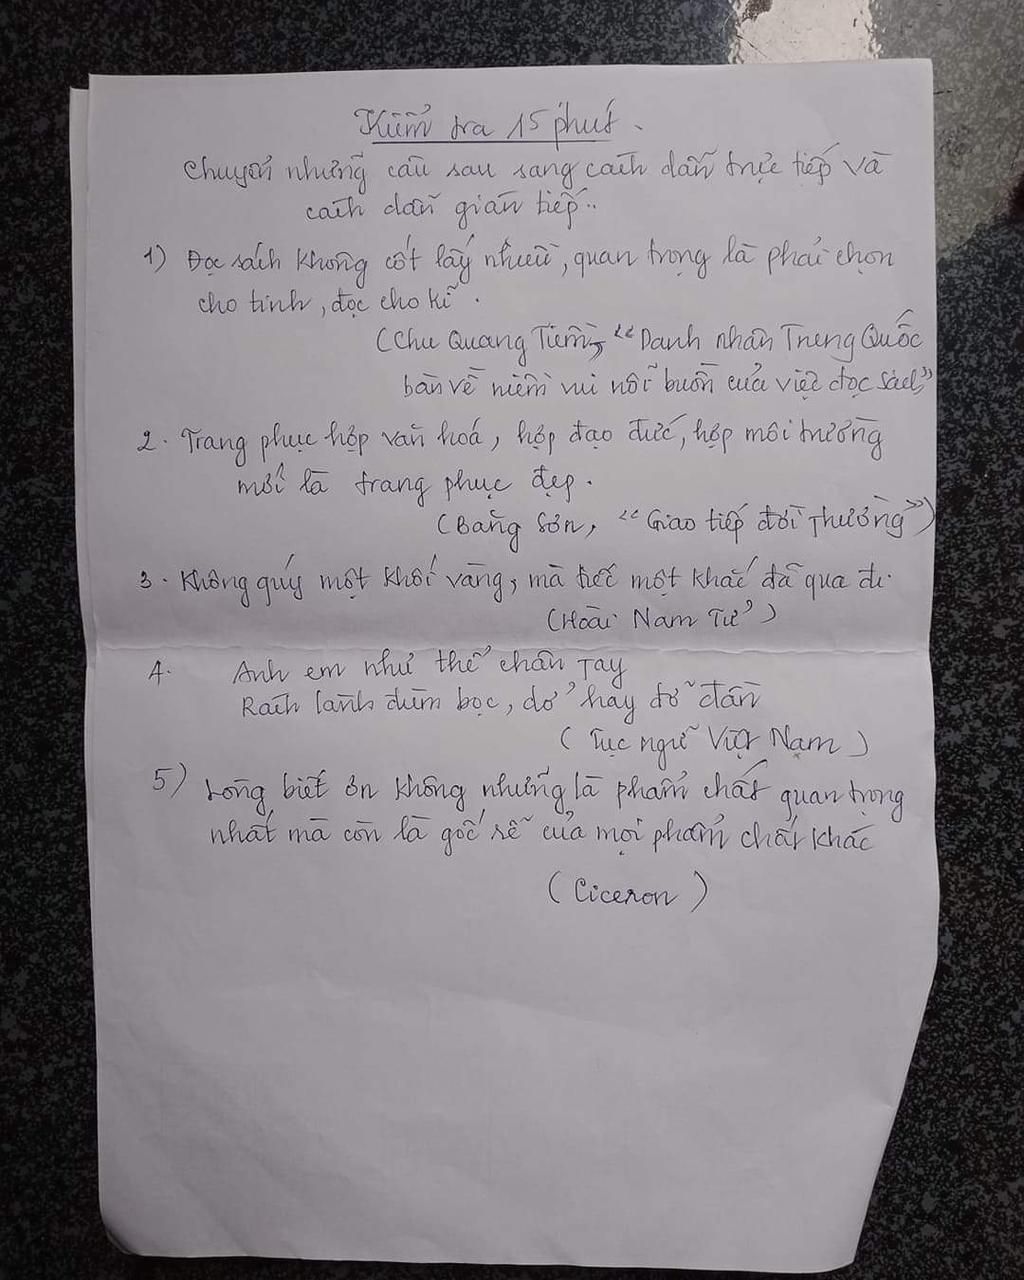 Kiểm tra 15 phút.
Chuyển những câu sau sang cách dẫn trực tiếp và
cách dẫn gián tiếp..
1) Đọc sách không cốt lấy nhiều, quan trọng là phải chọn
cho tinh, đọc cho kĩ.
(Chu Quang Tiềm, "Danh nhân Trung Quốc
bàn về niềm vui nỗi buồn của việc đọc sách")
2. Trang phục hợp văn hoá, hợp đạo đức, hợp môi trường
mới là trang phục đẹp.
(Băng Sơn, "Giao tiếp đời thường")
3. Không quý một khối vàng, mà tiếc một khắc đã qua đi.
(Hoài Nam Tử)
4. Anh em như thể chân tay
Rách lành đùm bọc, dở hay đỡ đần
(Tục ngữ Việt Nam)
5) Lòng biết ơn không những là phẩm chất quan trọng
nhất mà còn là gốc rễ của mọi phẩm chất khác
(Ciceron)